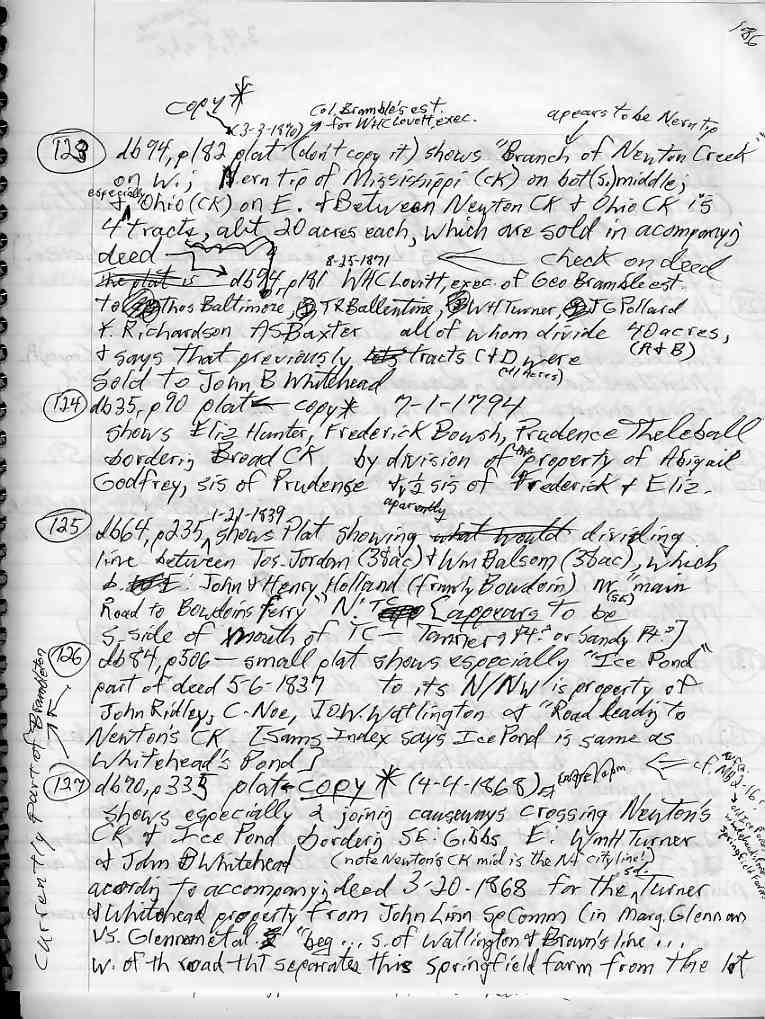 186
copy*
Col. Bramble's est.
(3-3-1870) for WHC Lovett, exec.
apears to be Nern tip
(123) db94, p182 plat (don't copy it) shows "Branch of Newton Creek"
on W.; Nern tip of Mississippi (CK) on bot(s.) middle;
especially
& "Ohio (CK) on E. & Between Newton CK & Ohio CK is
4 tracts, abt 20 acres each, which are sold in acompanyg
deed check on deed
the plat is db94, p181 8-25-1871 WHC Lovitt, exec. of Geo Bramble est.
to Thos Baltimore, TR Ballentine, WH Turner, JG Pollard
K. Richardson AS Baxter all of whom divide 40 acres,
(A & B)
& says that previously tracts C & D were
(41 Acres)
sold to John B Whitehead
(124) db35, p90 plat ← copy* 7-1-1794
shows Eliz Hunter, Frederick Boush, Prudence Theleball
borderig Broad CK by division of the property of Abigail
Godfrey, sis of Prudense & ½ sis of Frederick & Eliz.
apparently
(125) db64, p235, 1-21-1839 shows Plat showing what would dividing
line between Jos. Jordan (38ac) & Wm Balsom (38ac), which
b. E: John & Henry Holland (frmrly Bowdoin) nr. "main
(SE)
Road to Bowdoins Ferry" N: TC [appears to be
S. side of mouth of TC — Tanners Pt.? or Sandy Pt.?]
(126) db84, p506 — small plat shows especially "Ice Pond"
part of deed 5-6-1837 to its N/NW is property of
John Ridley, C. Noe, JO.W. Watlington & "Road leadg to
Newton's CK [Sams Index says Ice Pond is same as
Whitehead's Pond]
(127) db90, p335 plat ← copy* (4-4-1868)
cf.
shows especially 2 joining causeways crossing Newton's
CK & Ice Pond borderig SE: Gibbs E: WmH Turner
& John B Whitehead (note Newton's CK mid is the NF city line!)
acordig to accompanyg deed 3-20-1868 for the sd. Turner
& Whitehead property from John Linn SpComm (in Marg. Glennan
vs. Glennan etal. "beg... s. of Watlington & Brown's line...
w. of th road tht separates this Springfield farm from the lot
Currently Part of Brambleton